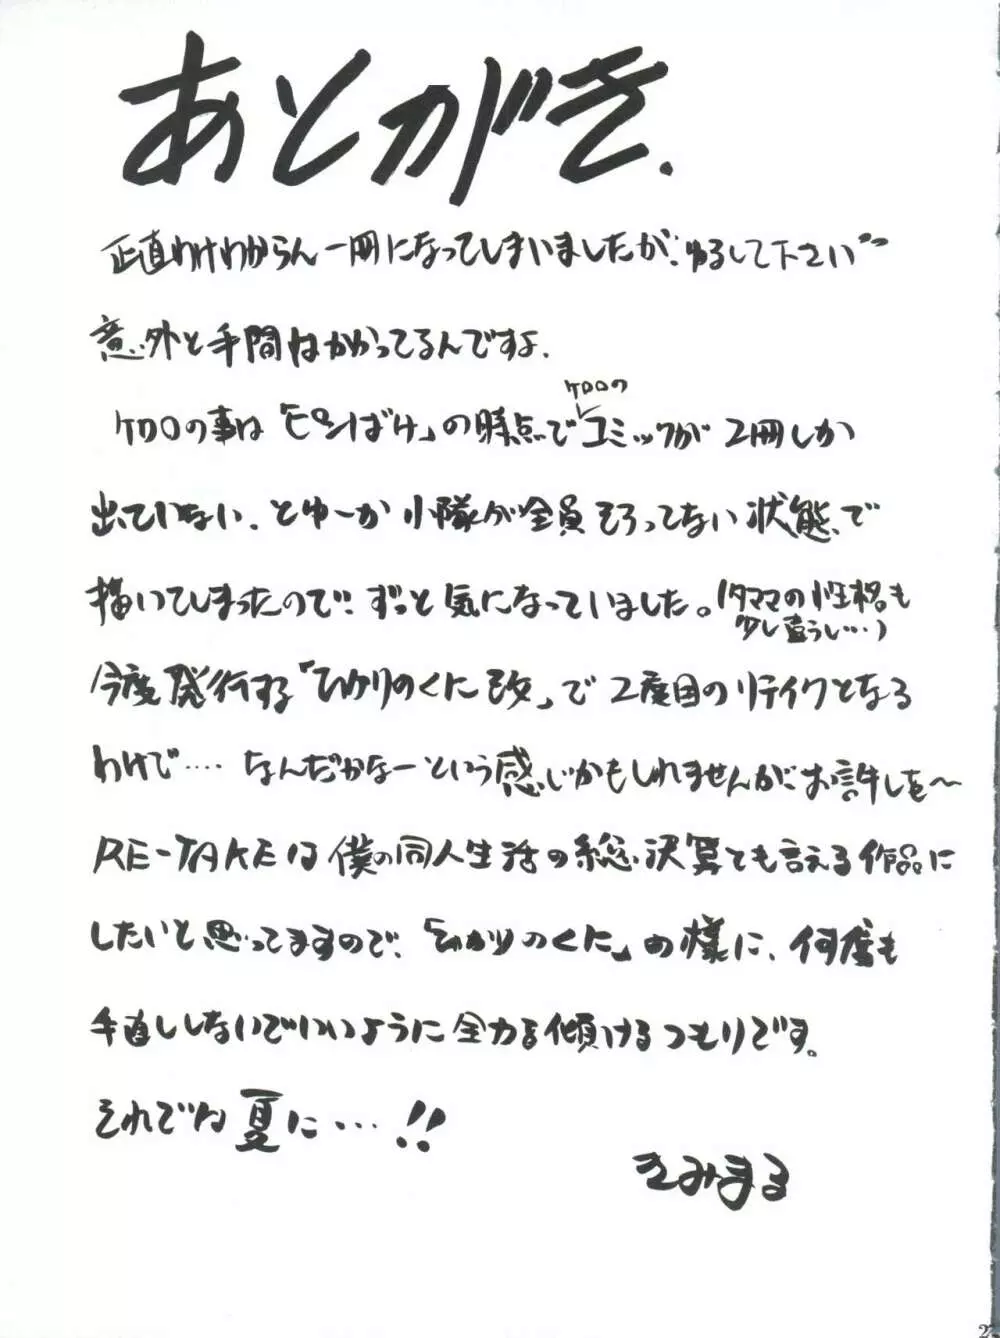 あとがき.
正直わけわからん一冊になってしまいましたが、ゆるして下さい
意外と手間はかかってるんですよ.
ケロロの
ケロロの事は「ピンばけ」の時点でコミックが2冊しか
出ていない、とゆーか小隊が全員そろってない状態で
描いてしまったので、ずっと気になっていました。(タママの性格も
少し違うし…)
今度発行する「ひかりのくに改」で2度目のリテイクとなる
わけで…. なんだかなーという感じかもしれませんが、お許しを〜
RE-TAKEは僕の同人生活の総決算とも言える作品に
したいと思ってますので、「ひかりのくに」の様に、何度も
手直ししないでいいように全力を傾けるつもりです。
それでは夏に…!!
きみまる